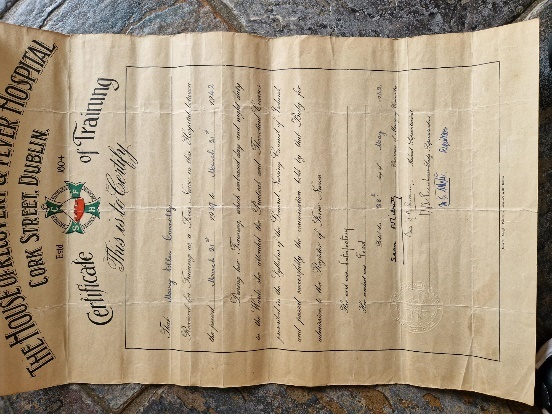 THE HOUSE OF RECOVERY & FEVER HOSPITAL
CORK STREET, DUBLIN.
Estd 1804
C S F H
Certificate of Training
This is to Certify
That Mary Ellen Connolly
Received her Training as a Fever Nurse in this Hospital between
the period March 21st to March 20th 1942
During her Training which embraced day and night duty
in the Wards, she attended the Practical and Theoretical Courses
prescribed in the Syllabus of the General Nursing Council of Ireland
and passed successfully the examination held by that Body for
admission to the Register of Fever Nurses
Her work was Satisfactory
Her conduct was Good
Dated this 28th day of May 1942
Matron & Nursing
Medical